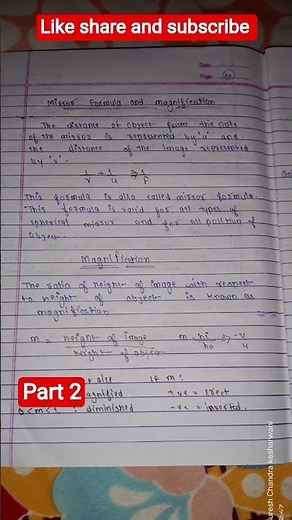 Like share and subscribe
Mirror Formula and magnification
The distance of object from the pole
of the mirror is represented by 'u' and
the distance of the Image represented
by 'v'.
1/v + 1/u ⇒ 1/f
This formula is also called mirror formula.
This formula is valid for all types of
spherical mirror and for all position of
object.
Magnification
The ratio of height of image with respect
to height of object is known as
magnification
m = height of image / height of object m = hi/ho ⇒ -v/u
size If m:
magnified +ve = erect
0<m<1 = diminished -ve = inverted.
Part 2
Suresh Chandra kesharwani